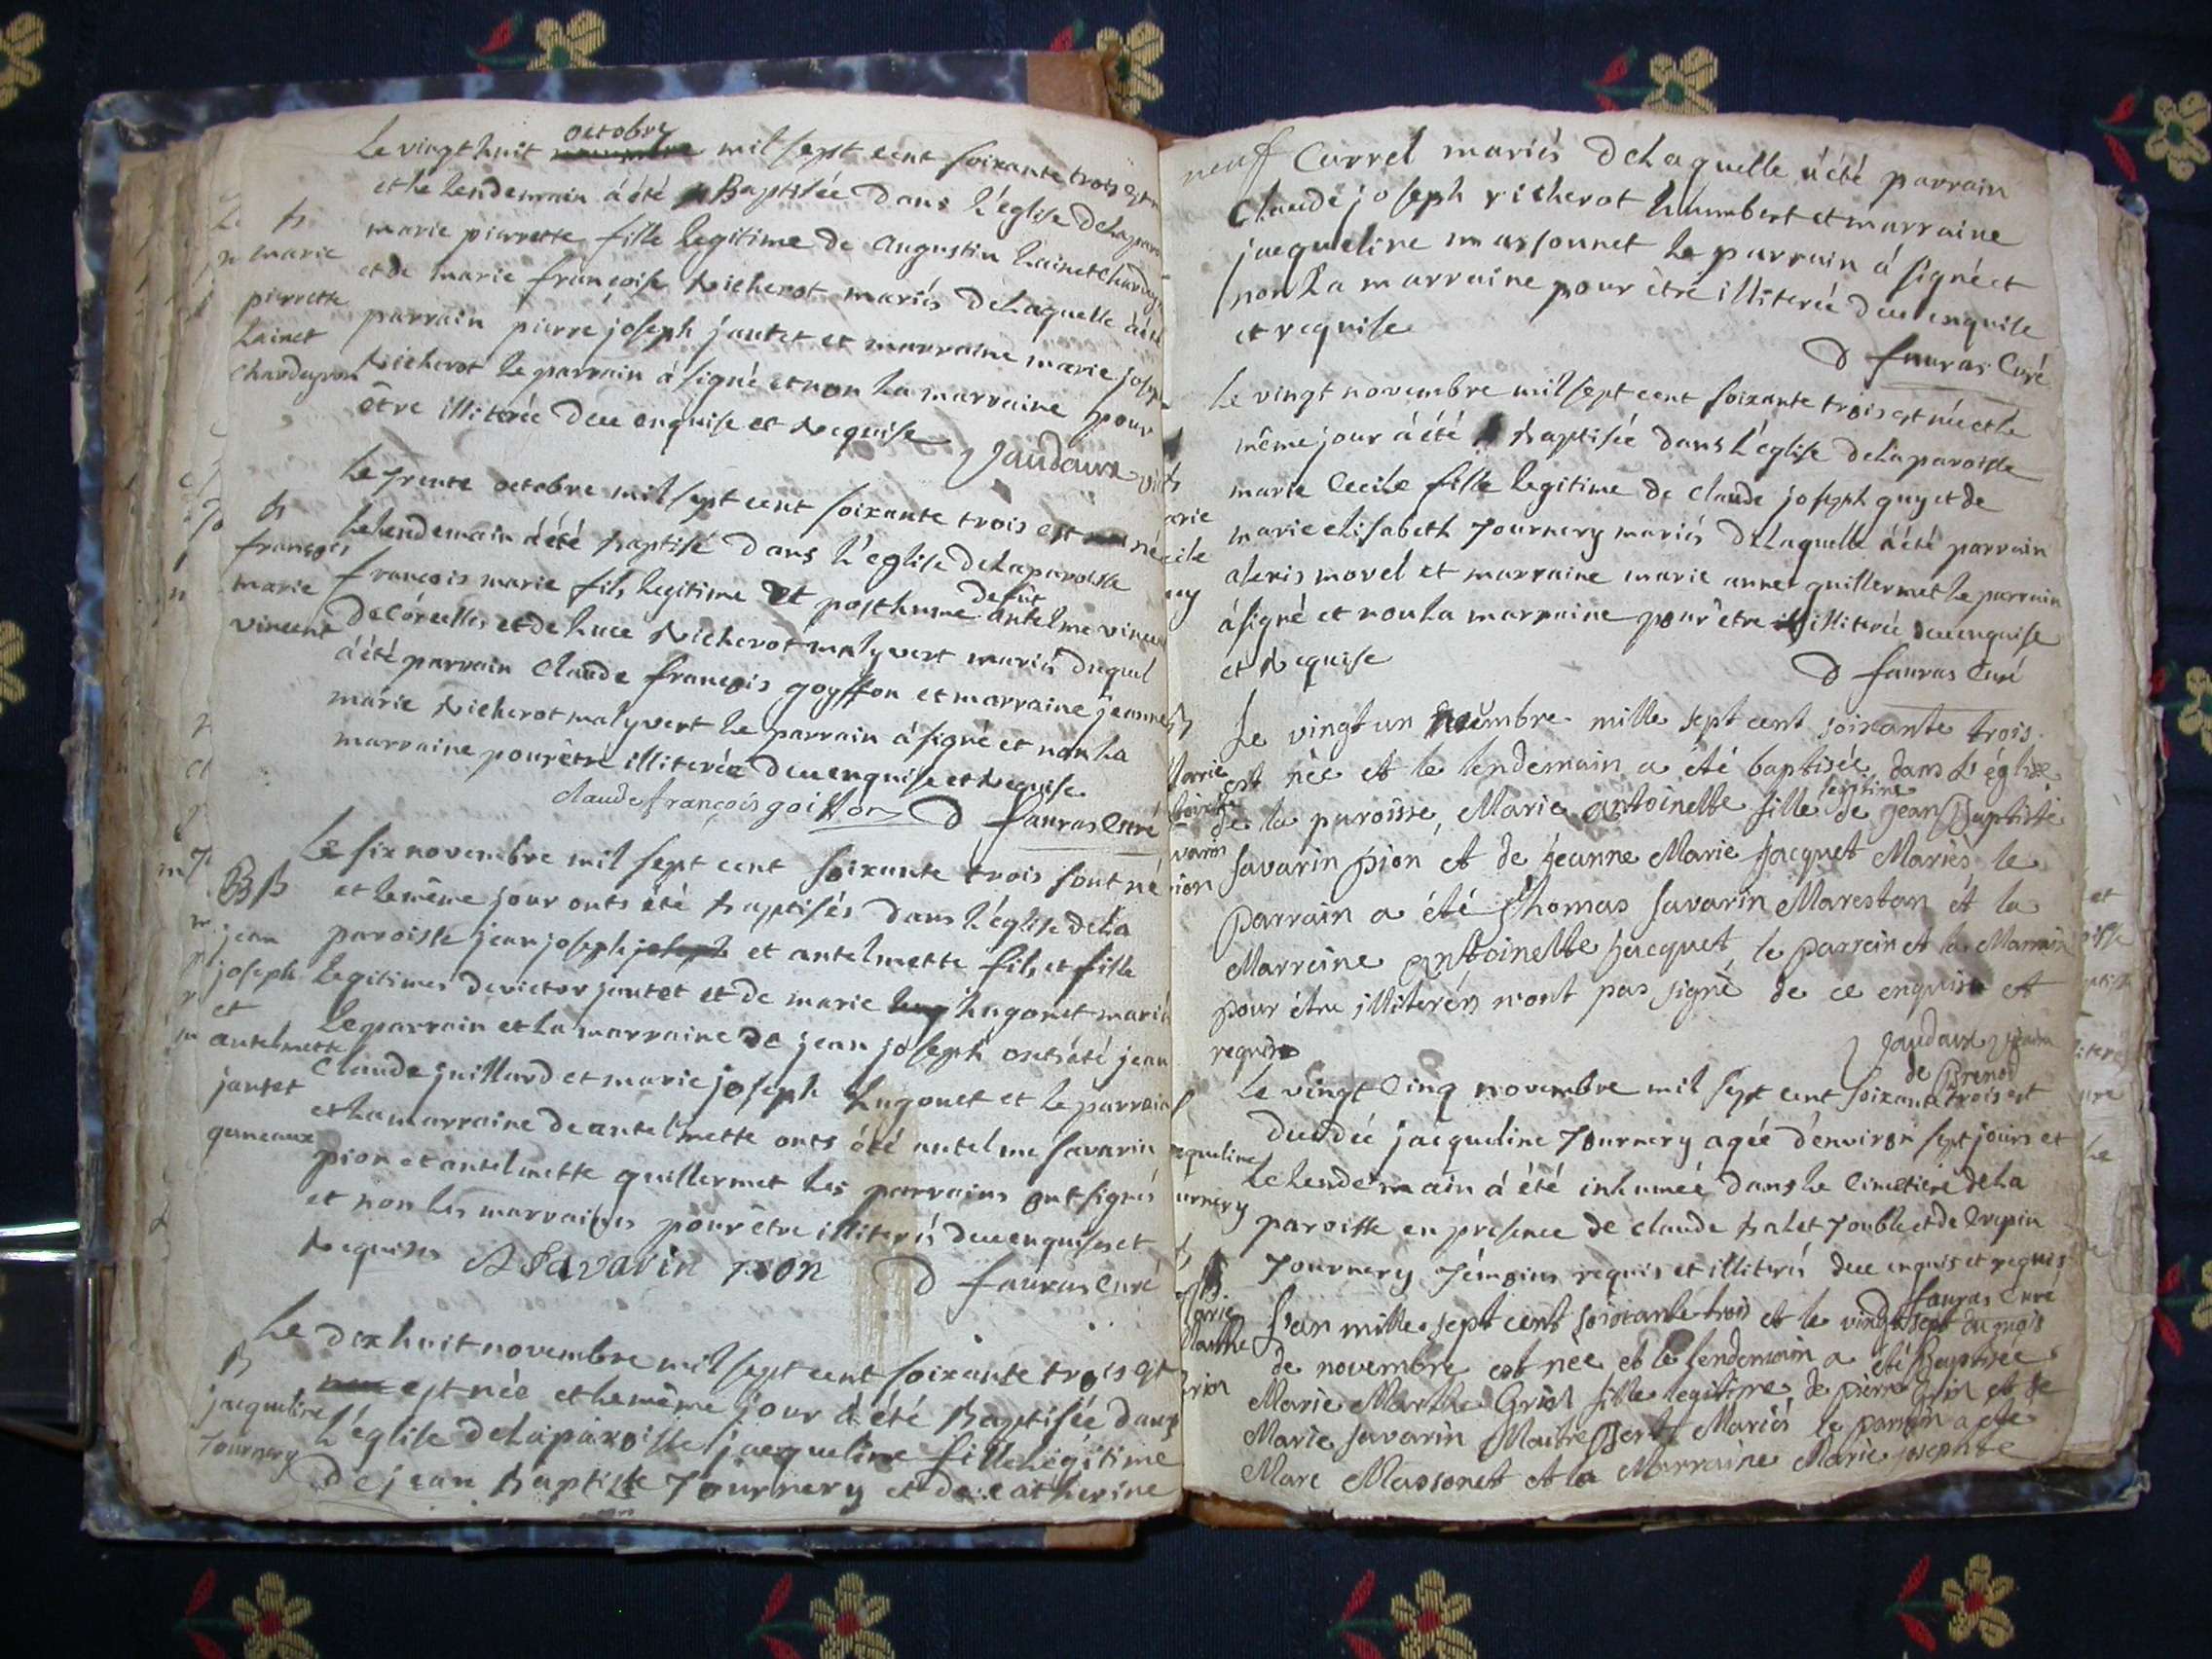 Le vingt huit octobre mil sept cent soixante trois est
et le lendemain à été Baptisée dans l'église dela
marie pierrette fille legitime de augustin Lainet
et de marie françoise richerot mariés delaquelle à été
parrain pierre joseph jantet et marraine marie
richerot le parrain à signé et non la marraine pour
être illiterée dece enquise et requise
Jaudaux
B
marie
pierrette
Lainet
Le trente octobre mil sept cent soixante trois est né
Le lendemain à été baptisé dans l'eglise delaparoisse
françois marie fils legitime et posthume defût antelme
et de Luce richerot malyvert mariés duquel
à été parrain claude françois goyffon et marraine jeanne
marie richerot malyvert le parrain à signé et non la
marraine pourêtre illiterée dece enquise et requise
claude françois goiffon D fauras curé
B
françois
marie
vincent
Le six novembre mil sept cent soixante trois sont né
et lemême jour onts été baptisés dans l'église dela
paroisse jean joseph et antelmette fils et fille
legitimes devictor jantet et de marie hugonet
Le parrain et la marraine de jean joseph onts été jean
claude juillard et marie joseph hugonet et le parrain
et la marraine de antelmette onts été antelme savarin
pion et antelmette guillermet les parrains ont signés
et non les marraines pour être illiterés dece enquises et
requises A Savarin pion D fauras curé
BB
jean
joseph
et
antelmette
jantet
gemeaux
Le dix huit novembre mil sept cent soixante trois est
est née et lemême jour à été Baptisée dans
l'église delaparoisse jacqueline fille legitime
de jean baptiste Tournery et de catherine
B
jacqueline
Tournery
neuf Currel mariés delaquelle à été parrain
Claude joseph richerot humbert et marraine
jacqueline massonnet le parrain à signé et
non la marraine pour être illiterée dece enquise
et requise
D fauras Curé
Le vingt novembre mil sept cent soixante trois est née et le
même jour à été baptisée dans l'église delaparoisse
marie Cecile fille legitime de claude joseph guy et de
marie elisabeth Tournery mariés delaquelle à été parrain
alexis morel et marraine marie anne guillermet le parrain
à signé et non la marraine pour être illiterée dece enquise
et requise
D fauras Curé
Le vingt un mille sept cent soixante trois
est née et le lendemain a été baptisée dans L'église
de la paroisse, Marie antoinette fille legitime de jean Baptiste
savarin pion et de jeanne Marie jacquet Mariés le
parrain a été thomas savarin Marestan et la
Marreine antoinette jacquet, le parrein et la
pour être illiterés n'ont pas signé de ce enquis et
requis
Jaudaux
de Brenod
Le vingt Cinq novembre mil sept cent soixante trois est
decedée jacqueline Tournery agée d'environ sept jours et
Le lendemain à été inhumée dans le Cimetiere dela
paroisse en presence de claude balet Touble et de
Tournery Témoins requis et illiterés dece enquis et requis
fauras curé
L'an mille sept cent soixante trois et le vingt sept du mois
de novembre est née et le lendemain a été Baptisée
Marie Marthe fille legitime de pierre et de
Marie savarin Maitre Mariés le parrein a été
Marc Massonet et la Marraine Marie josephte